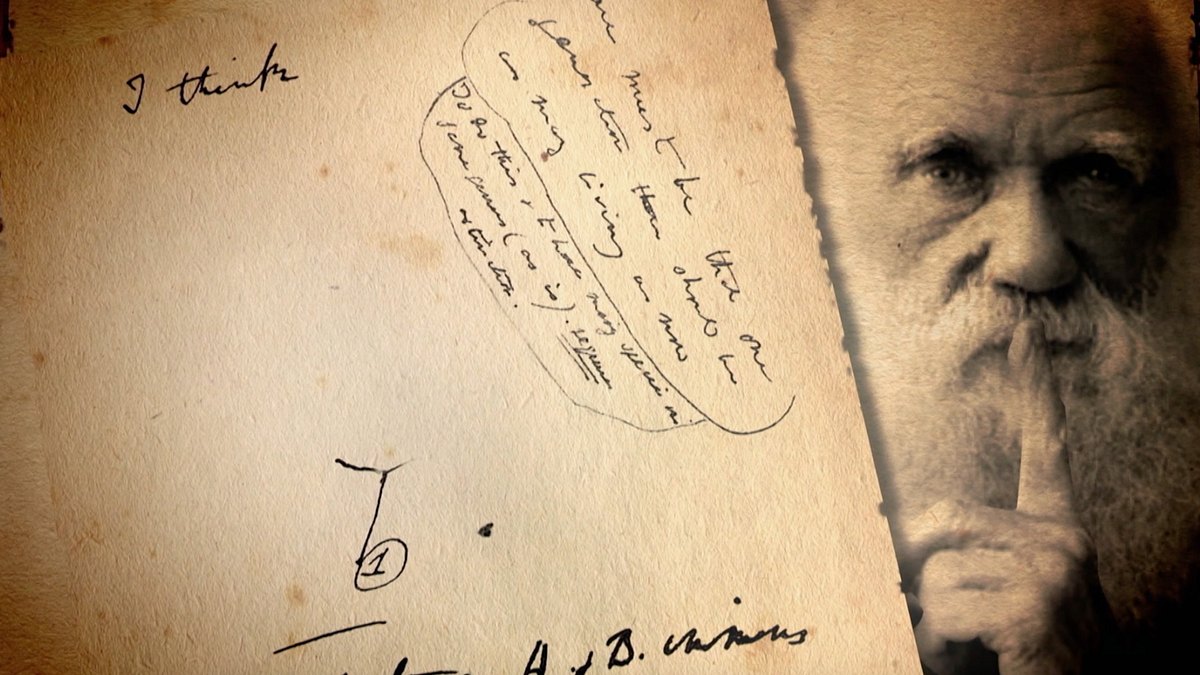 I think
must be that one
generation then should be
as many living as now
To do this & to have many species in
same genus (as is). requires
extinction.
1
A & B.